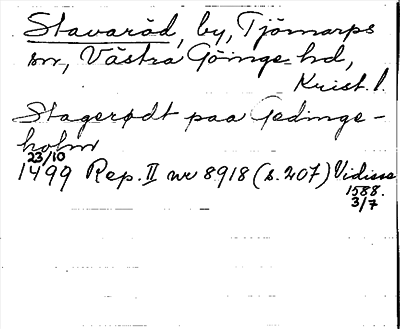 Stavaröd, by, Tjörnarps
sn, Västra Göinge hd,
Krist. l.
Stagerødt paa Gedinge-
holm
23/10
1499 Rep. II nr 8918 (s. 207) Vidisse
1588.
3/7